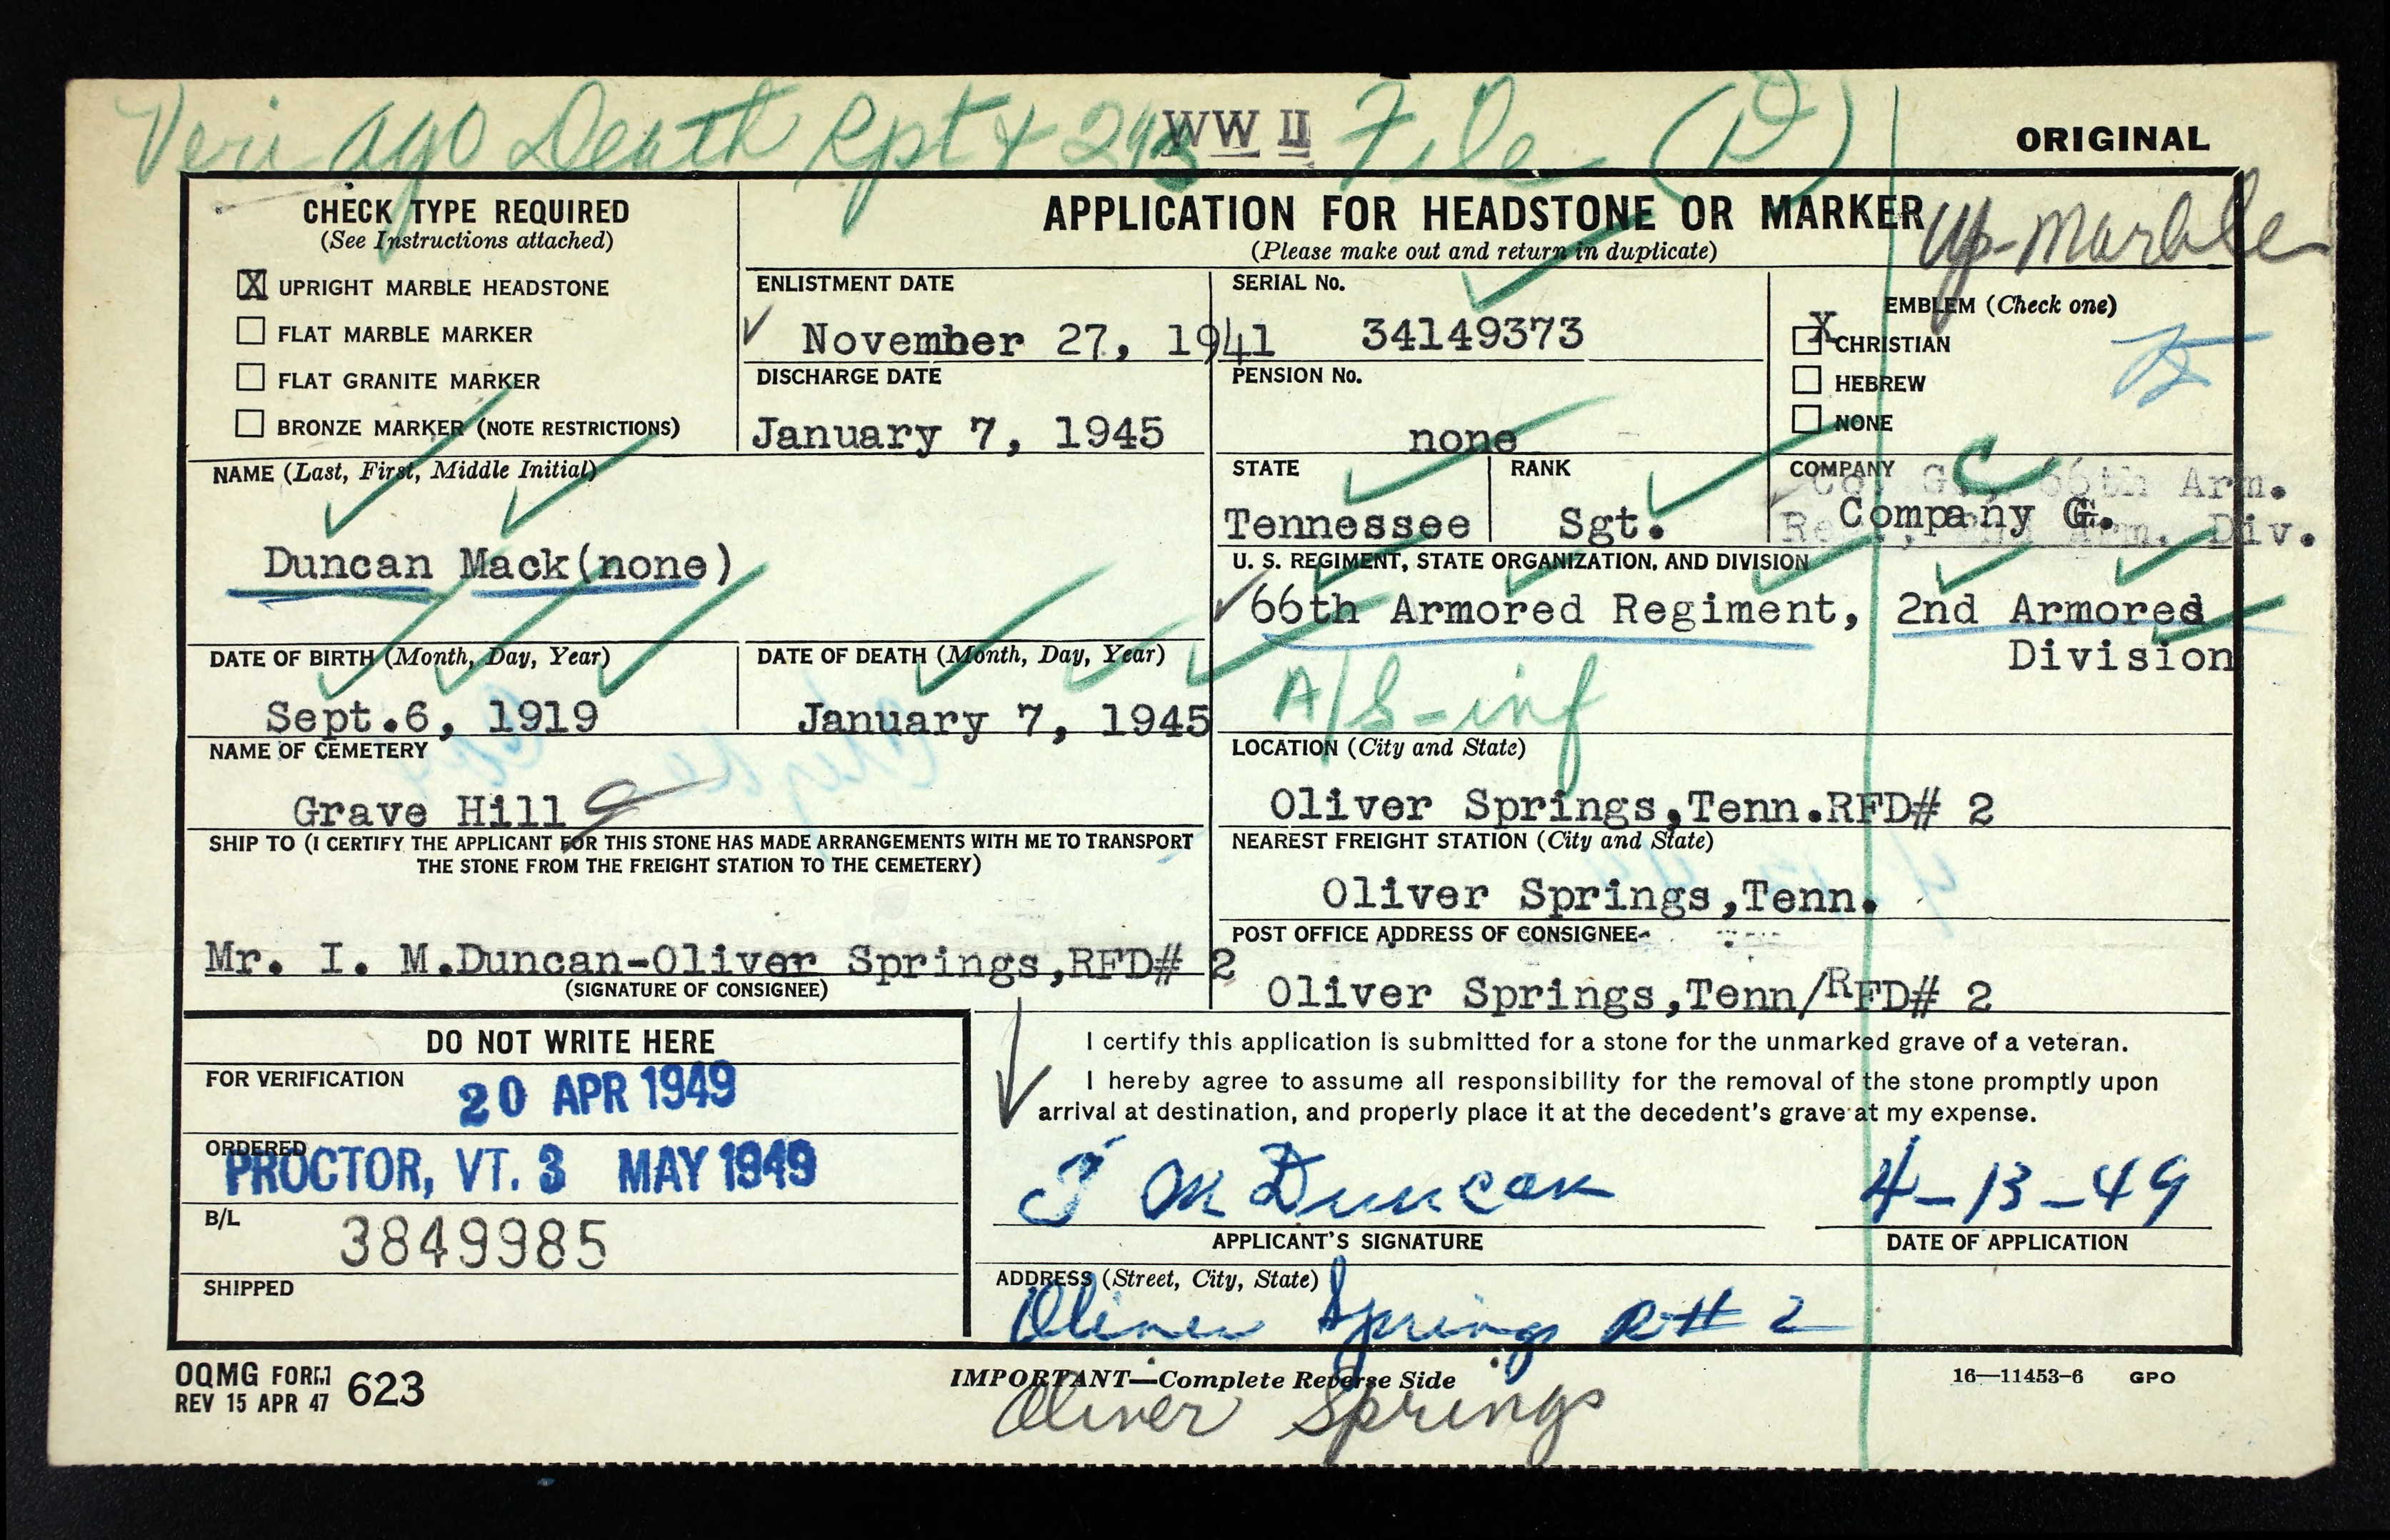 Veri ago Death Rpt & 293 File (D)
WW II
ORIGINAL
CHECK TYPE REQUIRED
(See Instructions attached)
X UPRIGHT MARBLE HEADSTONE
FLAT MARBLE MARKER
FLAT GRANITE MARKER
BRONZE MARKER (NOTE RESTRICTIONS)
APPLICATION FOR HEADSTONE OR MARKER
(Please make out and return in duplicate)
Up-Marble
ENLISTMENT DATE
November 27, 1941
SERIAL No.
34149373
DISCHARGE DATE
January 7, 1945
PENSION No.
none
EMBLEM (Check one)
X CHRISTIAN
HEBREW
NONE
NAME (Last, First, Middle Initial)
Duncan Mack(none)
STATE
Tennessee
RANK
Sgt.
COMPANY
C
Co. G., 66th Arm.
Company G.
Div.
U. S. REGIMENT, STATE ORGANIZATION, AND DIVISION
66th Armored Regiment, 2nd Armored
Division
A/S-inf
DATE OF BIRTH (Month, Day, Year)
Sept.6, 1919
DATE OF DEATH (Month, Day, Year)
January 7, 1945
NAME OF CEMETERY
Grave Hill
LOCATION (City and State)
Oliver Springs,Tenn.RFD# 2
SHIP TO (I CERTIFY THE APPLICANT FOR THIS STONE HAS MADE ARRANGEMENTS WITH ME TO TRANSPORT
THE STONE FROM THE FREIGHT STATION TO THE CEMETERY)
NEAREST FREIGHT STATION (City and State)
Oliver Springs,Tenn.
Mr. I. M.Duncan-Oliver Springs,RFD# 2
(SIGNATURE OF CONSIGNEE)
POST OFFICE ADDRESS OF CONSIGNEE
Oliver Springs,Tenn/RFD# 2
DO NOT WRITE HERE
FOR VERIFICATION
20 APR 1949
ORDERED
PROCTOR, VT. 3 MAY 1949
B/L
3849985
SHIPPED
I certify this application is submitted for a stone for the unmarked grave of a veteran.
I hereby agree to assume all responsibility for the removal of the stone promptly upon
arrival at destination, and properly place it at the decedent's grave at my expense.
I M Duncan
4-13-49
APPLICANT'S SIGNATURE
DATE OF APPLICATION
ADDRESS (Street, City, State)
Oliver Springs R# 2
OQMG FORM 623
REV 15 APR 47
IMPORTANT—Complete Reverse Side
16—11453-6 GPO
Oliver Springs